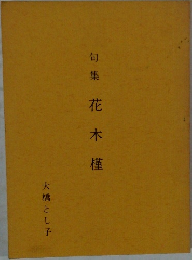 句集
花木槿
大橋とし子